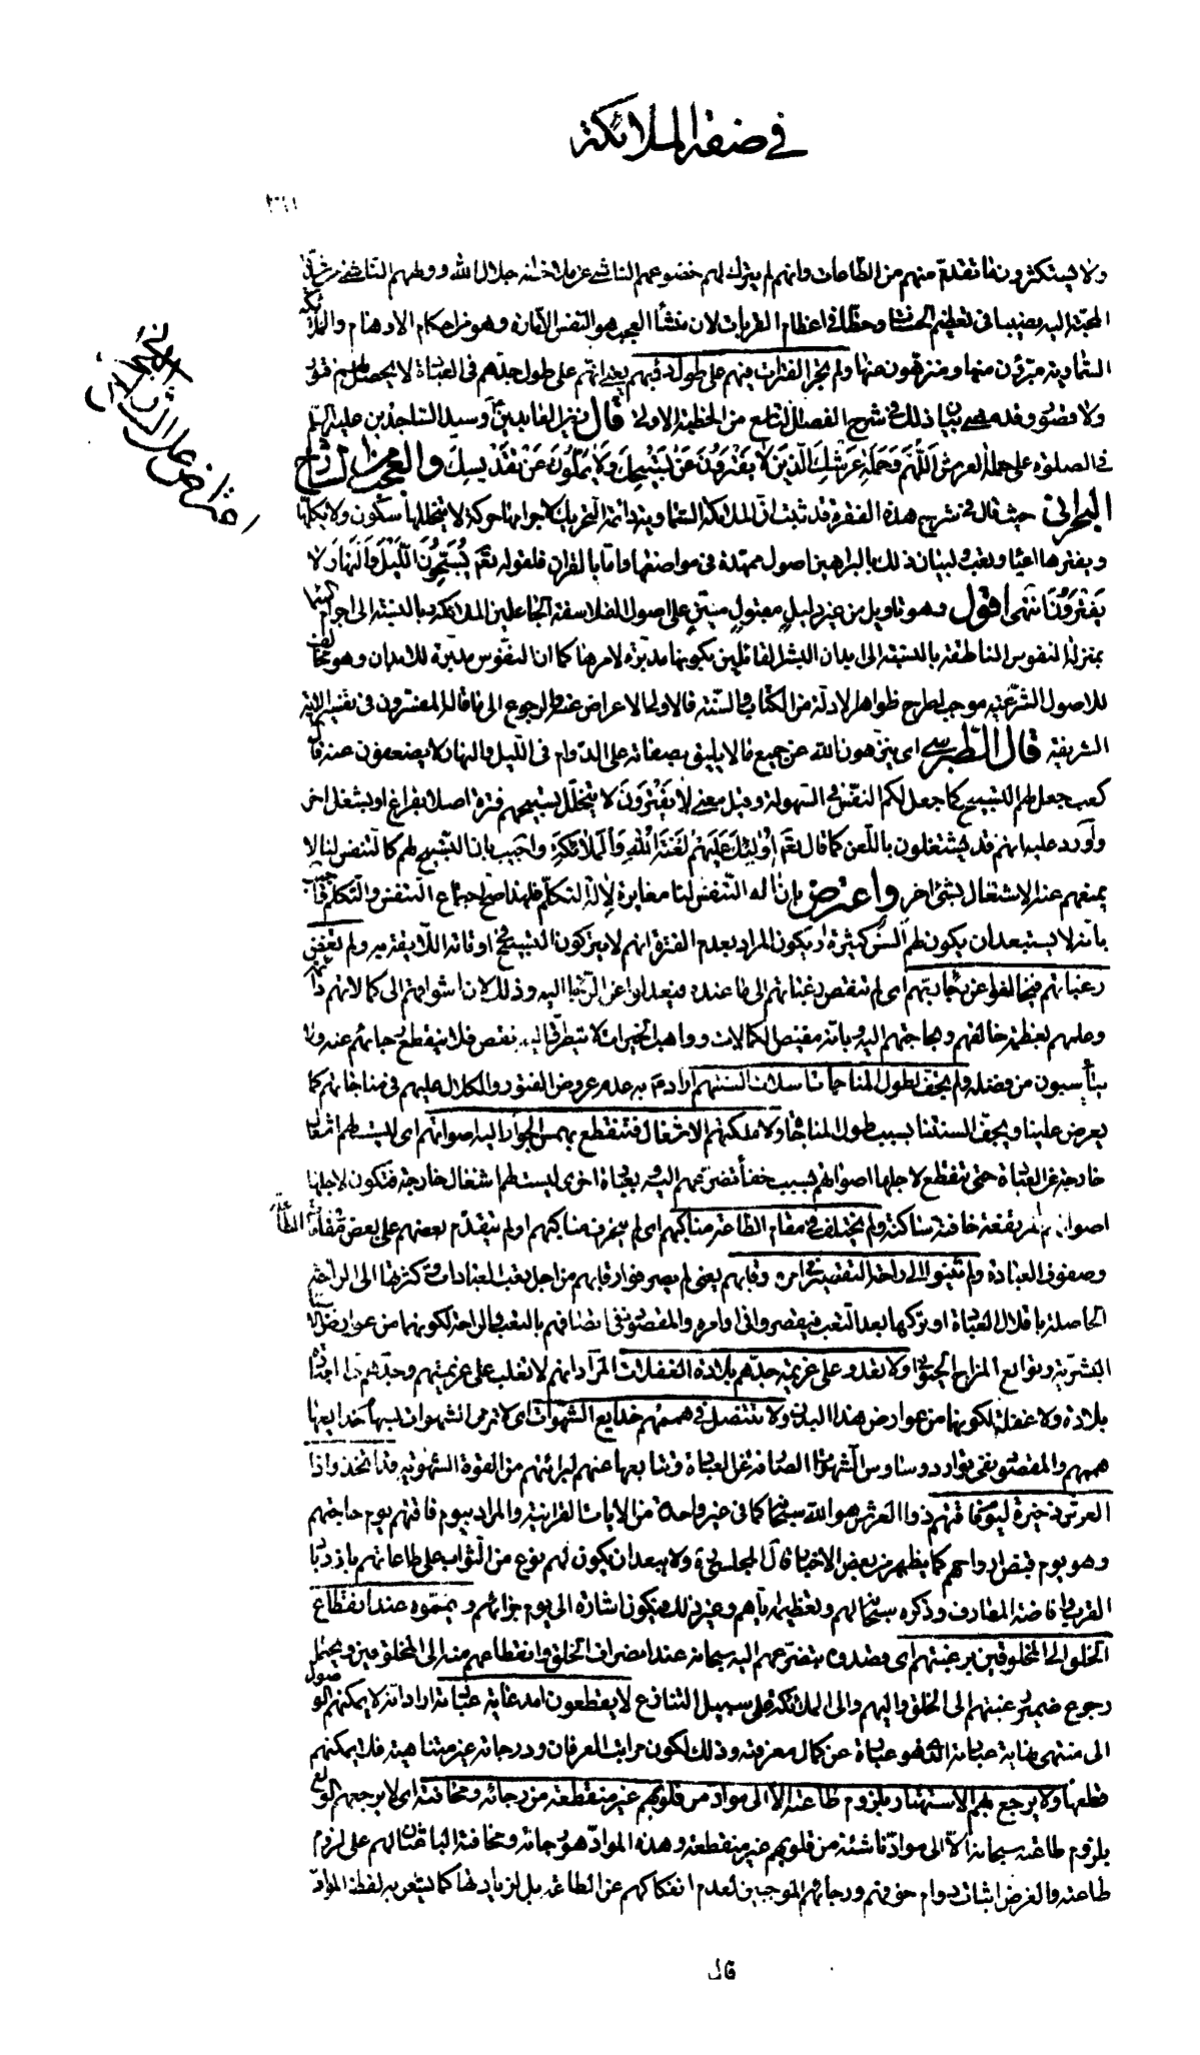 في صفة الملائكة
ولا يستكثرون ما تقدم منهم من الطاعات وانهم لم يترك لهم خضوعهم الناشي عن ملاحظة جلال الله وولههم الناشي من
المحبة اليه نصيبا في تعظيم الحسنات وحظا في اعظام القربات لان منشأ العجب هو النفس الامارة وهو من احكام الاوهام والملائكة
السماوية مبرؤن منها ومنزهون عنها ولم تجر الفترات فيهم على طول دؤبهم يعني انهم على طول جدهم في العبادة لا يحصل لهم فتور
ولا قصور وقد مضى بيان ذلك في شرح الفصل التاسع من الخطبة الاولى قال زين العابدين وسيد الساجدين عليه السلم
في الصلوة على حملة العرش اللهم وحملة عرشك الذين لا يفترون عن تسبيحك ولا يملون عن تقديسك والعجب من الشارح
البحراني حيث قال في شرح هذه الفقرة قد ثبت ان الملائكة السماوية دائمة التحريك لاجرامها حركة لا يتخللها سكون ولا يكلها
ويفترها اعياء وتعب ولبيان ذلك بالبراهين اصول ممهدة في مواضعها واما بالقران فلقوله تعم يسبحون الليل والنهار لا
يفترون انتهى اقول وهو تاويل من غير دليل مقبول مبتن على اصول الفلاسفة الجاعلين الملائكة بالنسبة الى اجرام السما
بمنزلة النفوس الناطقة بالنسبة الى ابدان البشر القائلين بكونها مدبرة لامرها كما ان النفوس مدبرة للابدان وهو مخالف
للاصول الشرعية موجب لطرح ظواهر الادلة من الكتاب والسنة فالاولى الاعراض عنه والرجوع الى ما قاله المفسرون في تفسير الاية
الشريفة قال الطبرسي اي ينزهون الله عن جميع ما لا يليق بصفاته على الدوام في الليل والنهار لا يضعفون عنه قال
كعب جعل لهم التسبيح كما جعل لكم النفس في السهولة وقيل معنى لا يفترون لا يتخلل تسبيحهم فترة اصلا بفراغ او بشغل اخر
واورد عليه انهم قد يشتغلون باللعن كما قال تعم اولئك عليهم لعنة الله والملائكة واجيب بان التسبيح لهم كالتنفس لنا لا
يمنعهم عنه الاشتغال بشيء اخر واعترض بان آلة التنفس لنا مغايرة لآلة التكلم فلهذا صح اجتماع التنفس والتكلم
بانه لا يستبعد ان يكون لهم السن كثيرة او يكون المراد بعدم الفترة انهم لا يتركون التسبيح في اوقاته اللايقة به ولم تغض
رغباتهم فيخالفوا عن رجاء ربهم اي لم تنقص رغباتهم الى ما عنده فيعدلوا عن الرجاء اليه وذلك لان اشواقهم الى كمالاتهم
وعلمهم بعظمة خالقهم وبحاجتهم اليه وبانه مفيض الكمالات وواهب الخيرات لا يتطرق اليه نقص فلا ينقطع رجائهم عنه ولا
يتأيسون من فضله ولم تجف لطول المناجاة اسلات السنتهم اراد به عدم عروض الفتور والكلال عليهم في مناجاتهم كما
يعرض علينا ويجف السنتنا بسبب طول المناجاة ولا ملكتهم الاشغال فتنقطع بهمس الجؤار اليه اصواتهم اي ليست لهم اشغال
خارجة عن العبادة حتى تنقطع لاجلها اصواتهم بسبب خفاء تضرعهم اليه بعبادة اخرى ليست لهم اشغال خارجة فتكون لاجلها
خافتة ساكنة ولم تختلف في مقاوم الطاعة مناكبهم اي لم ينحرف مناكبهم او لم يتقدم بعضهم على بعض في مقام الطاعة
وصفوف العبادة ولم يثنوا الى راحة التقصير في امره رقابهم يعني لم يصرفوا رقابهم من اجل تعب العبادات وكثرتها الى الراحة
الحاصلة باقلال العبادة او تركها بعد التعب فيقصروا في اوامره والمقصود نفي اتصافهم بالتعب والراحة لكونهما من عوارض
البشرية وتوابع المزاج الحيواني ولا تعدو على عزيمة جدهم بلادة الغفلات المراد انهم لا تغلب على عزيمتهم وجدهم
بلادة ولا غفلة لكونها من عوارض هذا البدن ولا تنتضل في هممهم خدايع الشهوات اي لا ترمى الشهوات بسهام خدايعها
هممهم والمقصود نفي توارد وساوس الشهوات الصادة عن العبادة وتتابعها عنهم لبرائتهم من القوة الشهوية قد اتخذوا ذا
العرش ذخيرة ليوم فاقتهم ذو العرش هو الله سبحانه كما في غير واحدة من الايات القرانية والمراد بيوم فاقتهم يوم حاجتهم
وهو يوم قبض ارواحهم كما يظهر من بعض الاخبار قال المجلسي ولا يبعد ان يكون لهم نوع من الثواب على طاعاتهم بازدياد
القرب وافاضة المعارف وذكره سبحانه لهم وتعظيمه اياهم وغير ذلك فيكون اشارة الى يوم جزائهم ويمموه عند انقطاع
الخلق الى المخلوقين برغبتهم اي قصدوه بتضرعهم اليه سبحانه عند انصراف الخلق وانقطاعهم منه الى المخلوقين ويحتمل
رجوع ضمير رغبتهم الى الخلق واليهم والى الملائكة على سبيل التنازع لا يقطعون امد غاية عبادته اراد انه لا يمكنهم الوصول
الى منتهى نهاية عبادته الذي هو عبارة عن كمال معرفته وذلك لكون مراتب العرفان ودرجاته غير متناهية فلا يمكنهم
قطعها ولا يرجع بهم الاستهتار بلزوم طاعته الا الى مواد من قلوبهم غير منقطعة من رجائه ومخافته اي لا يرجعهم الولع
بلزوم طاعته سبحانه الا الى مواد ناشئة من قلوبهم غير منقطعة وهذه المواد هو رجائه ومخافته الباعثان لهم على لزوم
طاعته والغرض اثبات دوام خوفهم ورجائهم الموجبين لعدم انفكاكهم عن الطاعة بل لزيادتها كما يشعر به لفظ المواد
قال